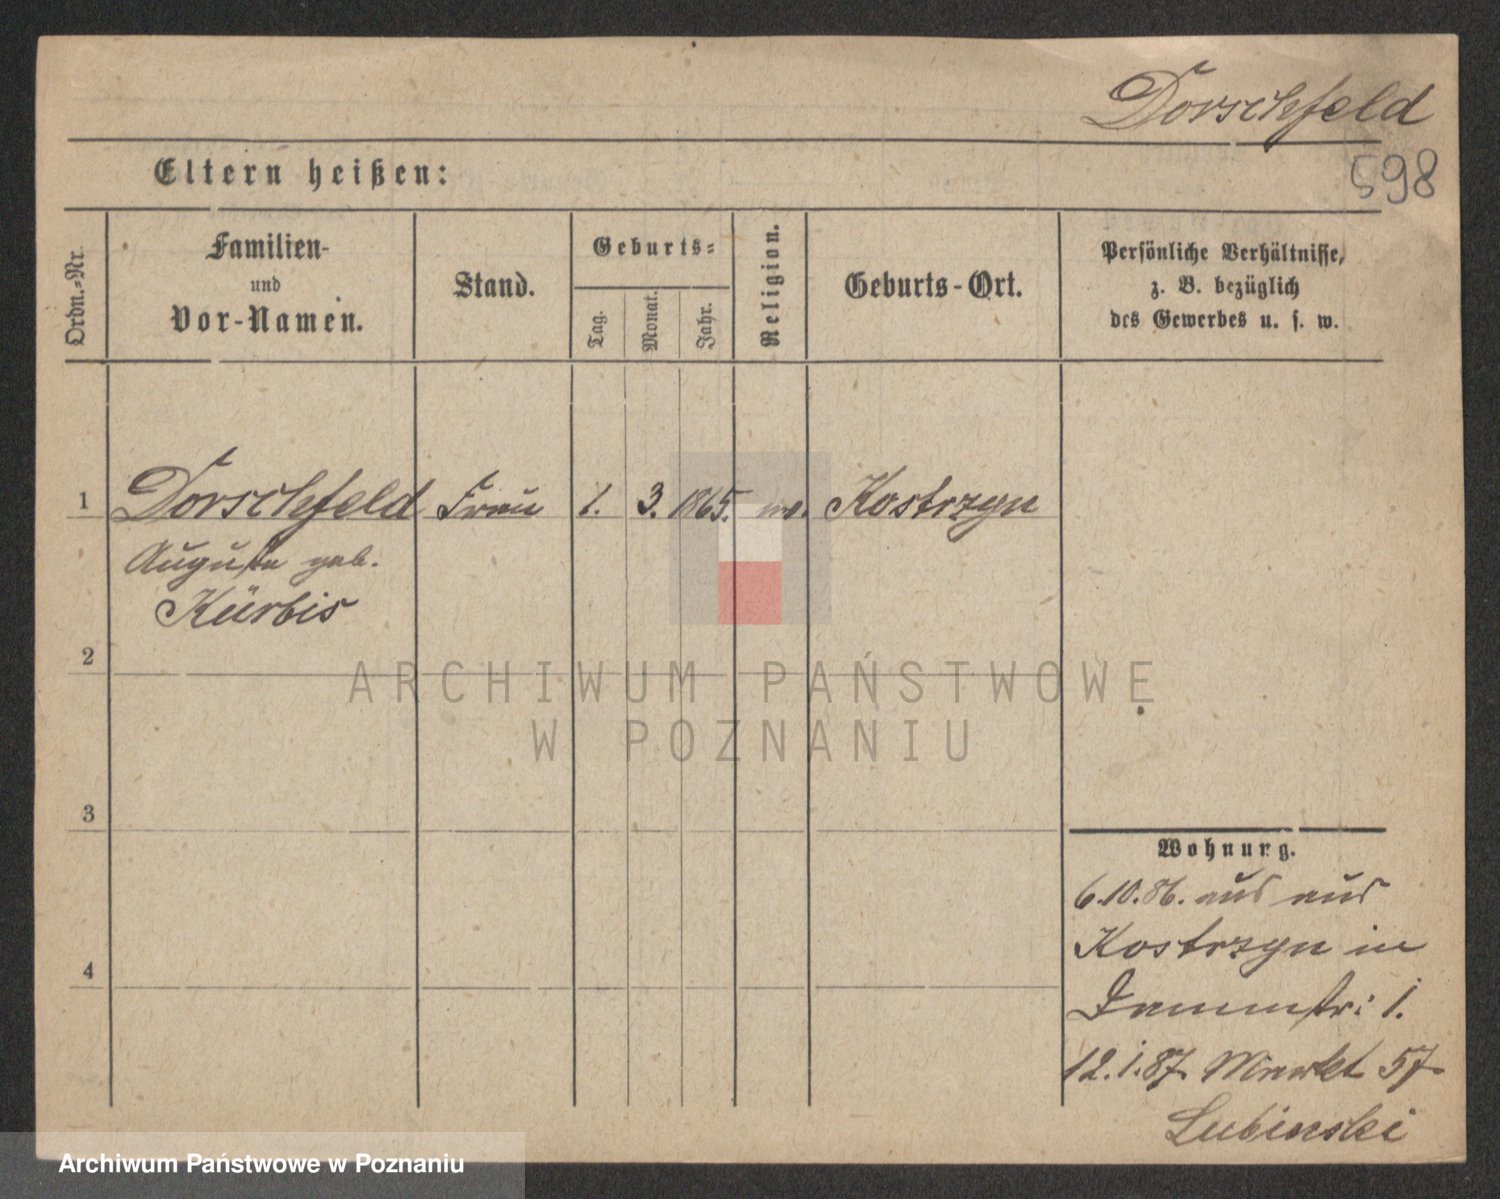 Dorschfeld
598
Eltern heißen:
Ordn.-Nr.
Familien-
und
Vor-Namen.
Stand.
Geburts-
Tag.
Monat.
Jahr.
Religion.
Geburts-Ort.
Persönliche Verhältnisse,
z. B. bezüglich
des Gewerbes u. s. w.
1 Dorschfeld Frau 1. 3. 1865. Kostrzyn
Auguste geb.
Kürbis
2
3
4
Wohnung.
6.10.86. aus aus
Kostrzyn in
Dammstr: 1.
12.1.87. Markt 57
Lubinski
ARCHIWUM PAŃSTWOWE
W POZNANIU
Archiwum Państwowe w Poznaniu